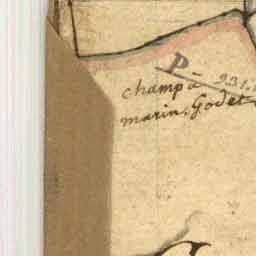 P
champ à 931.
marin. Godet